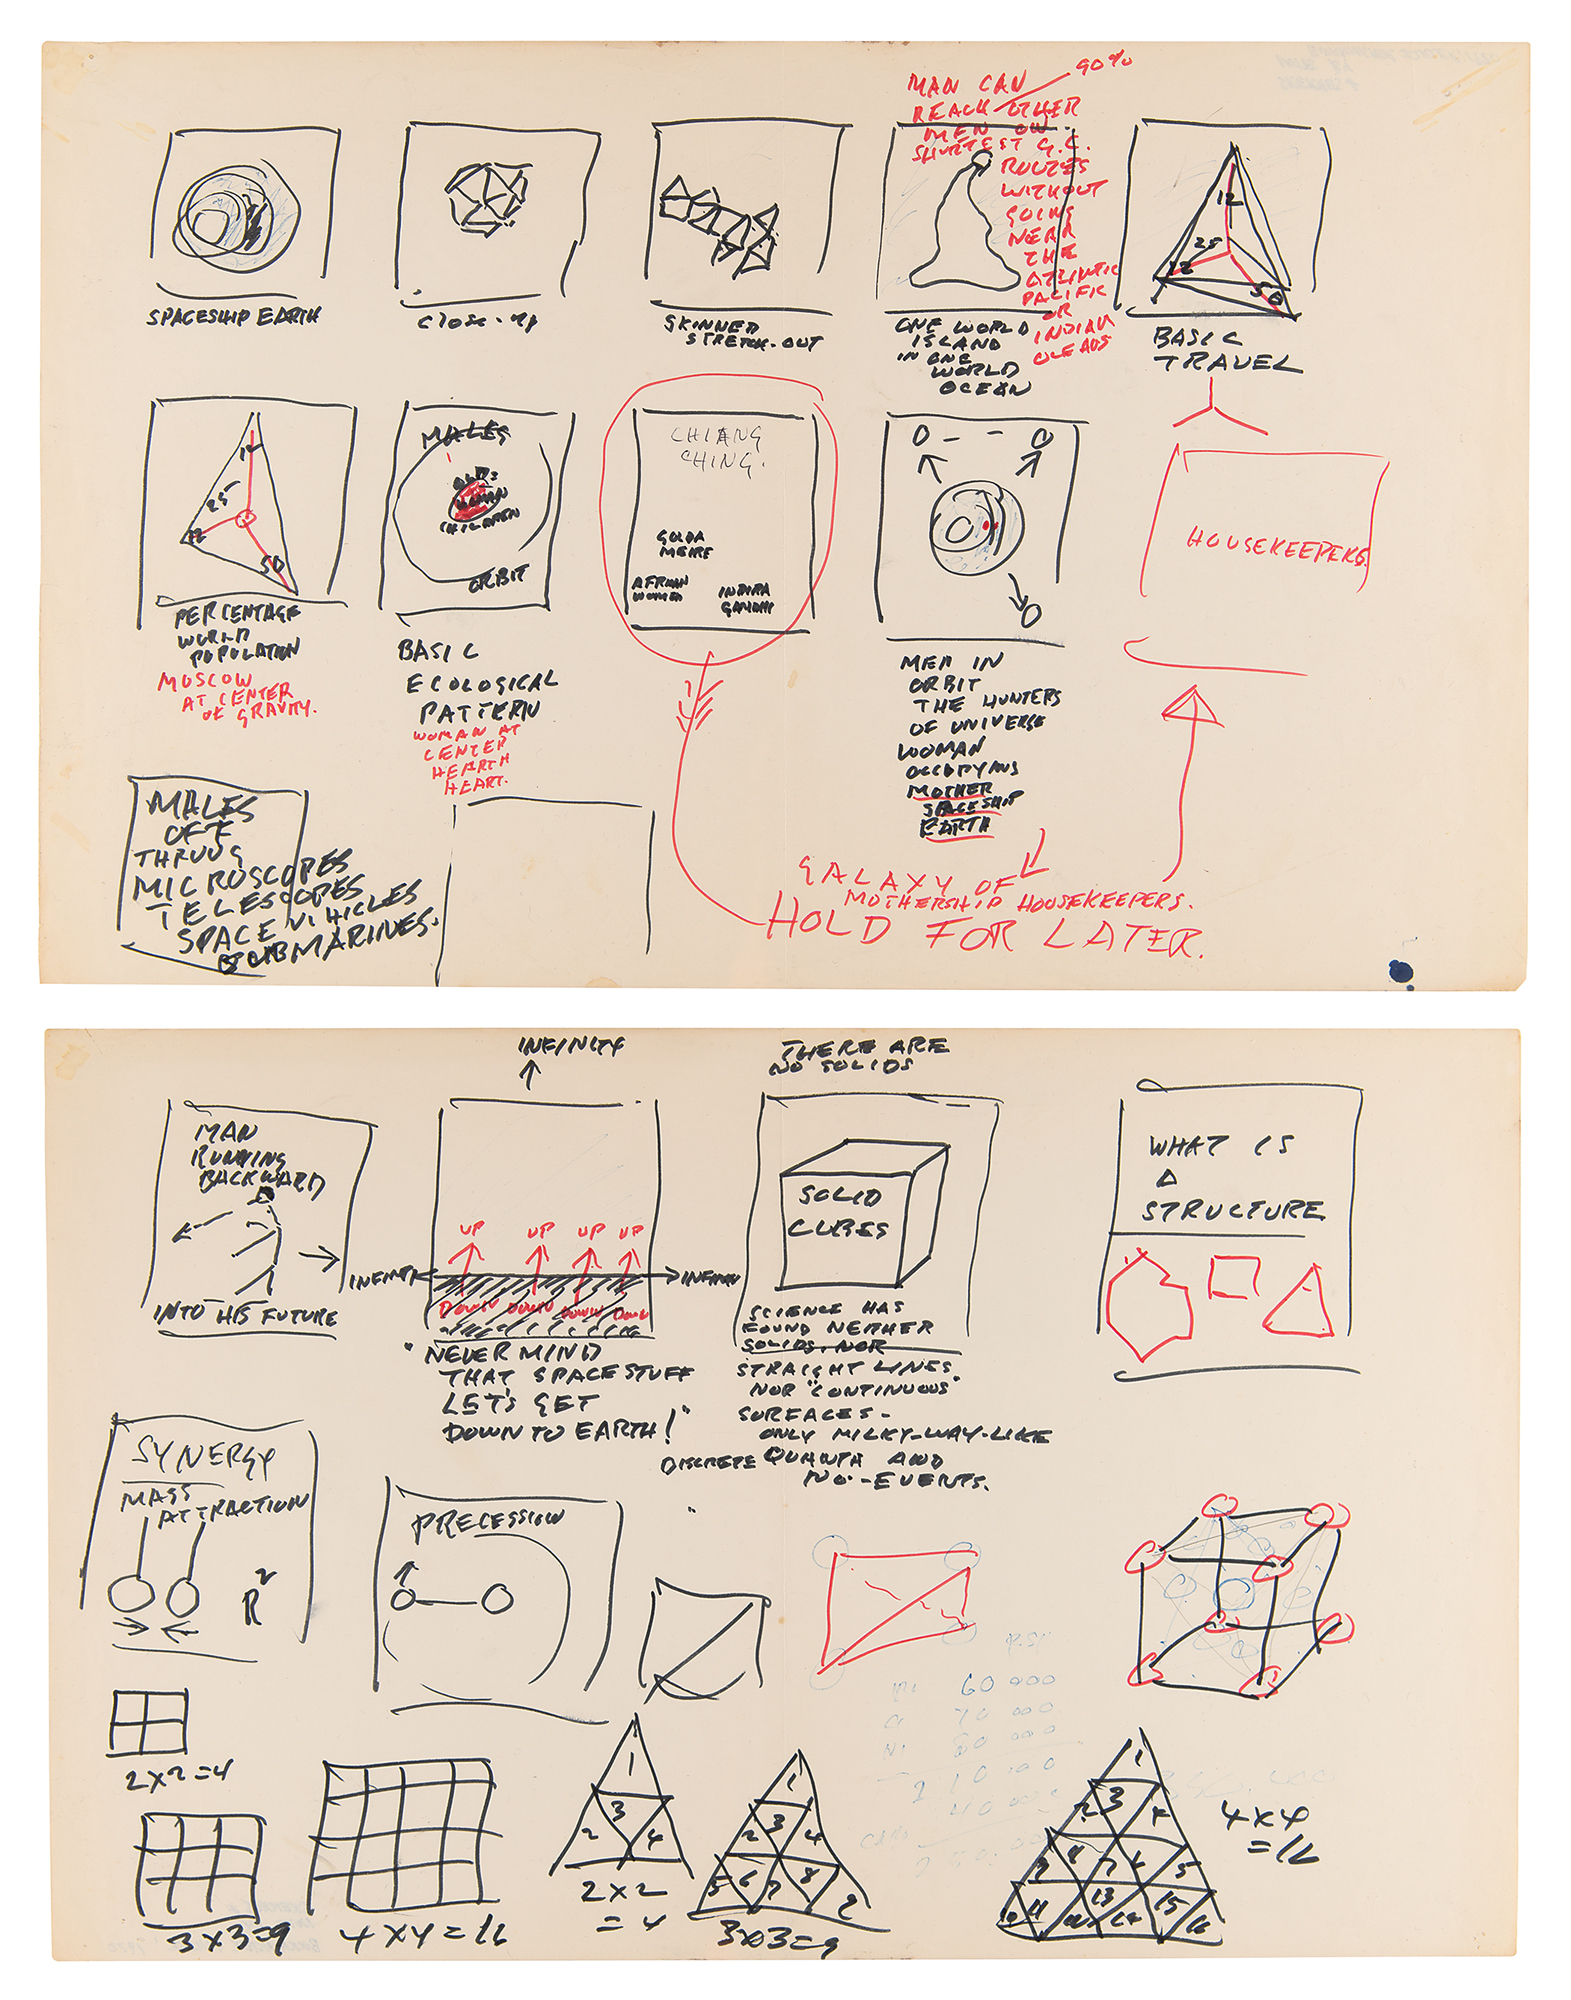 90%
MAN CAN
REACH OTHER
MEN ON
SHORTEST G.C.
ROUTES
WITHOUT
GOING
NEAR
THE
ATLANTIC
PACIFIC
OR
INDIAN
OCEANS
SPACESHIP EARTH
CLOSE-UP
SKINNED
STRETCH-OUT
ONE WORLD
ISLAND
IN ONE
WORLD
OCEAN
12
25
12
50
BASIC
TRAVEL
25
12
50
PERCENTAGE
WORLD
POPULATION
MOSCOW
AT CENTER
OF GRAVITY.
MALES
WOMEN
CHILDREN
ORBIT
BASIC
ECOLOGICAL
PATTERN
WOMAN AT
CENTER
HEARTH
HEART.
CHIANG
CHING.
GOLDA
MEIRE
AFRICAN
WOMEN
INDIRA
GANDHI
MEN IN
ORBIT
THE HUNTERS
OF UNIVERSE
WOMAN
OCCUPYING
MOTHER
SPACESHIP
EARTH
HOUSEKEEPERS
MALES
OFF
THRUUG
MICROSCOPES
TELESCOPES
SPACE VIHICLES
& SUBMARINES.
GALAXY OF
MOTHERSHIP HOUSEKEEPERS.
HOLD FOR LATER.
MAN
RUNNING
BACKWARD
INTO HIS FUTURE
INFINITY
UP UP UP UP
INFINITY INFINITY
DOWN DOWN DOWN DOWN
"NEVER MIND
THAT SPACE STUFF
LET'S GET
DOWN TO EARTH!"
THERE ARE
NO SOLIDS
SOLID
CUBES
SCIENCE HAS
FOUND NEITHER
SOLIDS, NOR
STRAIGHT LINES
NOR "CONTINUOUS"
SURFACES-
ONLY MILKY-WAY-LIKE
DISCRETE QUANTA AND
NO-EVENTS.
WHAT IS
A
STRUCTURE
SYNERGY
MASS
ATTRACTION
R2
PRECESSION
60 000
70 000
80 000
210 000
2x2=4
3x3=9
4x4=16
1
3
2 4
2x2
=4
1
3
2 4
5 6 7 8 9
3x3=9
1
2 3 4
5
10 11 13 15 16
4x4
=16